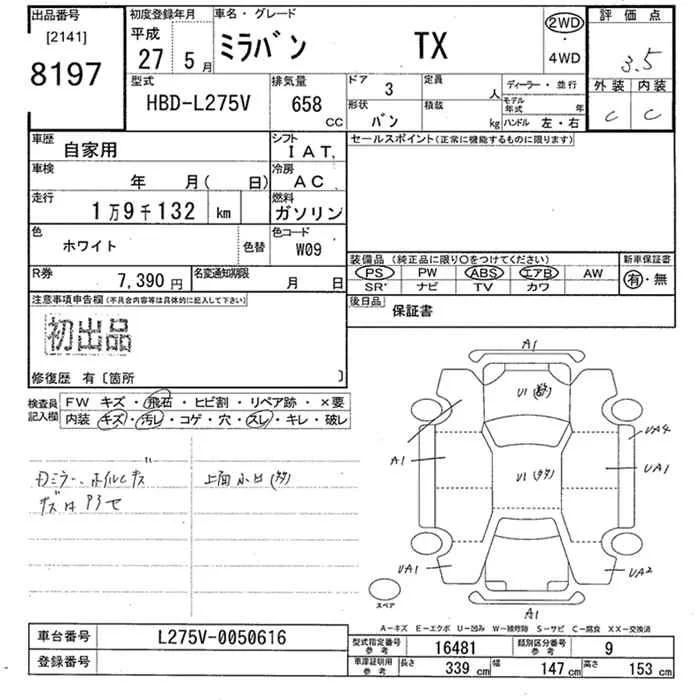 出品番号
[2141]
8197
初度登録年月
平成
27年 5月
車名・グレード
ミラバン TX
2WD
・
4WD
評価点
3.5
外装 内装
C C
型式
HBD-L275V
排気量
658 CC
ドア
3
定員
人
形状
バン
積載
kg
ディーラー・並行
モデル年式 年
ハンドル 左・右
車歴
自家用
シフト
IAT,
車検
年 月( 日)
冷房
AC
走行
1万9千132 km
燃料
ガソリン
色
ホワイト
色替
色コード
W09
R券
7,390円
名変通知期限
月 日
セールスポイント(正常に機能するものに限ります)
装備品(純正品に限り○をつけてください)
PS PW ABS エアB AW
SR ナビ TV カワ
新車保証書
有・無
後日品
保証書
注意事項申告欄(不具合内容等は具体的に記入して下さい)
初出品
修復歴 有〔箇所 〕
検査員記入欄
FW キズ・飛石・ヒビ割・リペア跡・×要
内装 キズ・汚レ・コゲ・穴・スレ・キレ・破レ
A1
U1
A1
U1
UA4
UA1
UA1
UA2
A1
スペア
A-キズ E-エクボ U-凹み W-補修跡 S-サビ C-腐食 XX-交換済
車台番号
L275V-0050616
登録番号
型式指定番号 参考
16481
類別区分番号 参考
9
車庫証明用 参考
長さ 339cm
幅 147cm
高さ 153cm